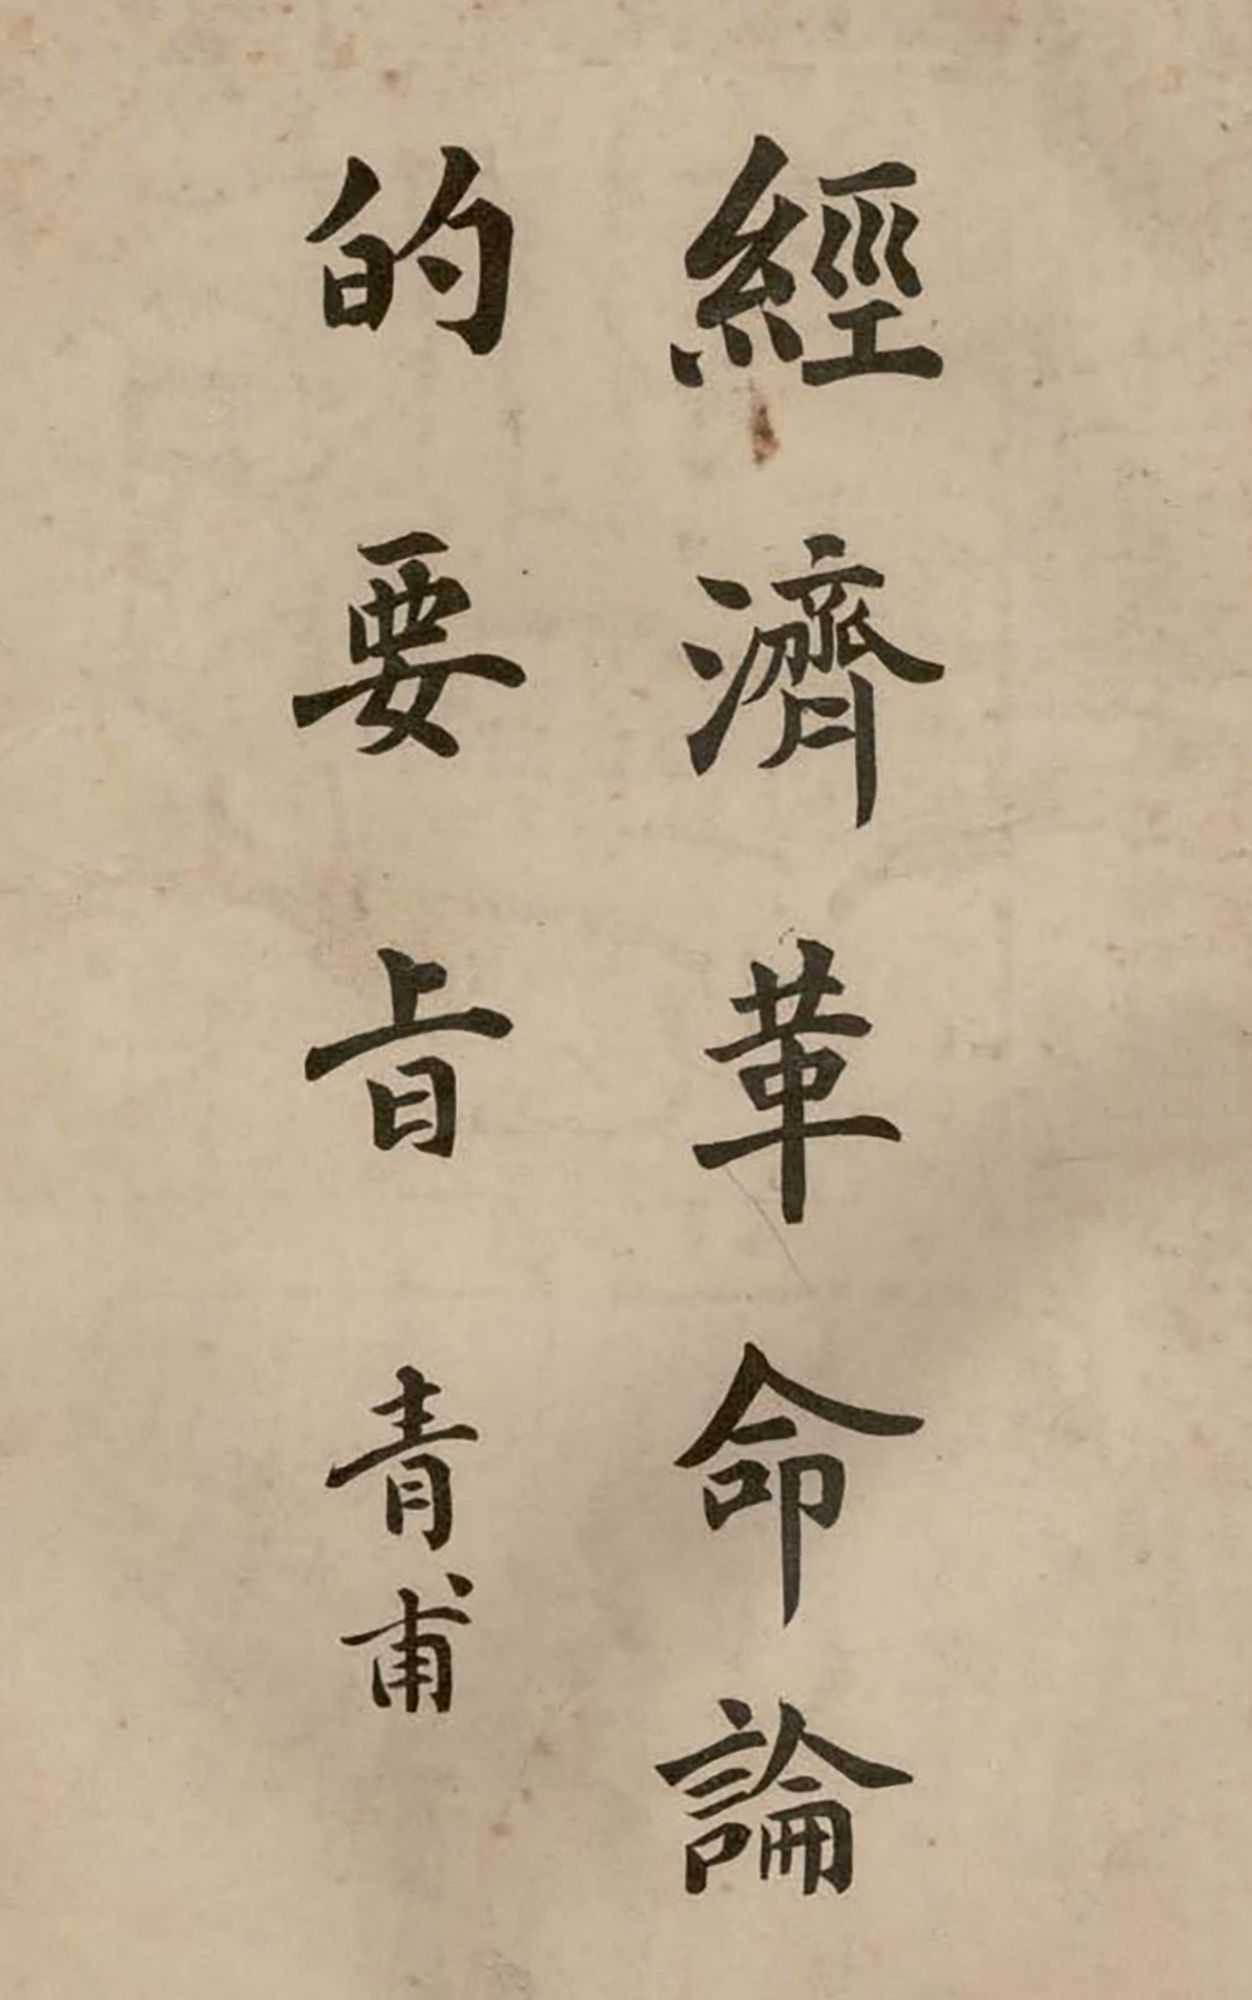 經濟革命論
的要旨 青甫